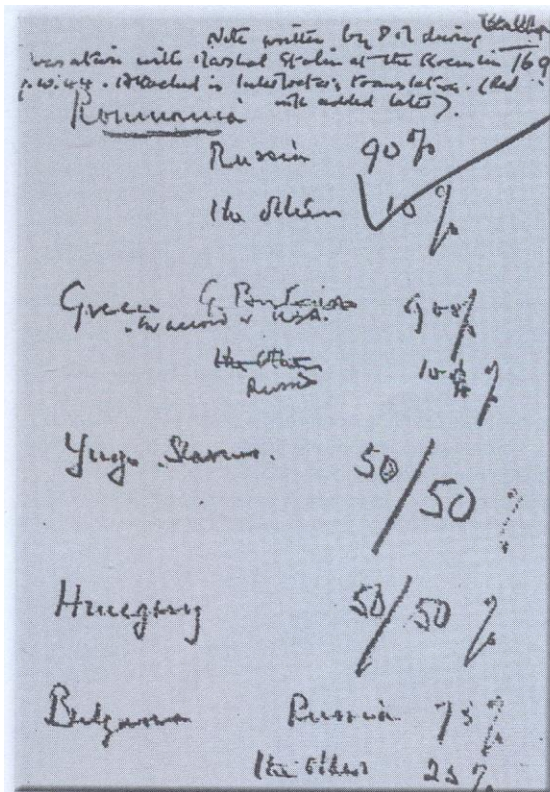 Note written by PM during
with Marshal Stalin at the Kremlin
Attached is Interpreter's translation. (Red
added later).
Roumania
Russia 90%
The others 10%
Greece G. Britain 90%
in accord w USA.
The others 10%
Russia
Yugo Slavia. 50/50%
Hungary 50/50%
Bulgaria Russia 75%
The others 25%